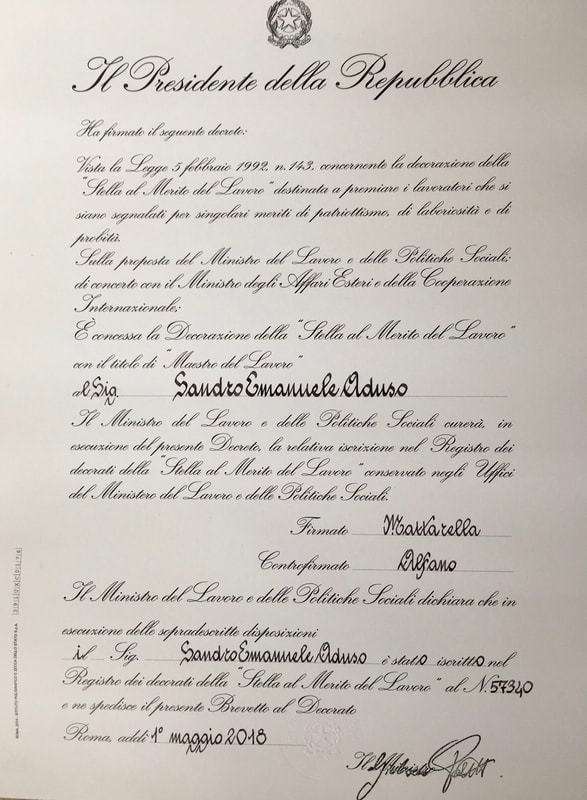 Il Presidente della Repubblica
Ha firmato il seguente decreto:
Vista la Legge 5 febbraio 1992, n. 143, concernente la decorazione della
"Stella al Merito del Lavoro" destinata a premiare i lavoratori che si
siano segnalati per singolari meriti di patriottismo, di laboriosità e di
probità.
Sulla proposta del Ministro del Lavoro e delle Politiche Sociali;
di concerto con il Ministro degli Affari Esteri e della Cooperazione
Internazionale;
È concessa la Decorazione della "Stella al Merito del Lavoro"
con il titolo di "Maestro del Lavoro"
al Sig. Sandro Emanuele Aduso
Il Ministro del Lavoro e delle Politiche Sociali curerà, in
esecuzione del presente Decreto, la relativa iscrizione nel Registro dei
decorati della "Stella al Merito del Lavoro" conservato negli Uffici
del Ministero del Lavoro e delle Politiche Sociali.
Firmato Mattarella
Controfirmato Alfano
Il Ministro del Lavoro e delle Politiche Sociali dichiara che in
esecuzione delle sopradescritte disposizioni
il Sig. Sandro Emanuele Aduso è stato iscritto nel
Registro dei decorati della "Stella al Merito del Lavoro" al N. 57340
e ne spedisce il presente Brevetto al Decorato
Roma, addì 1° maggio 2018
Il